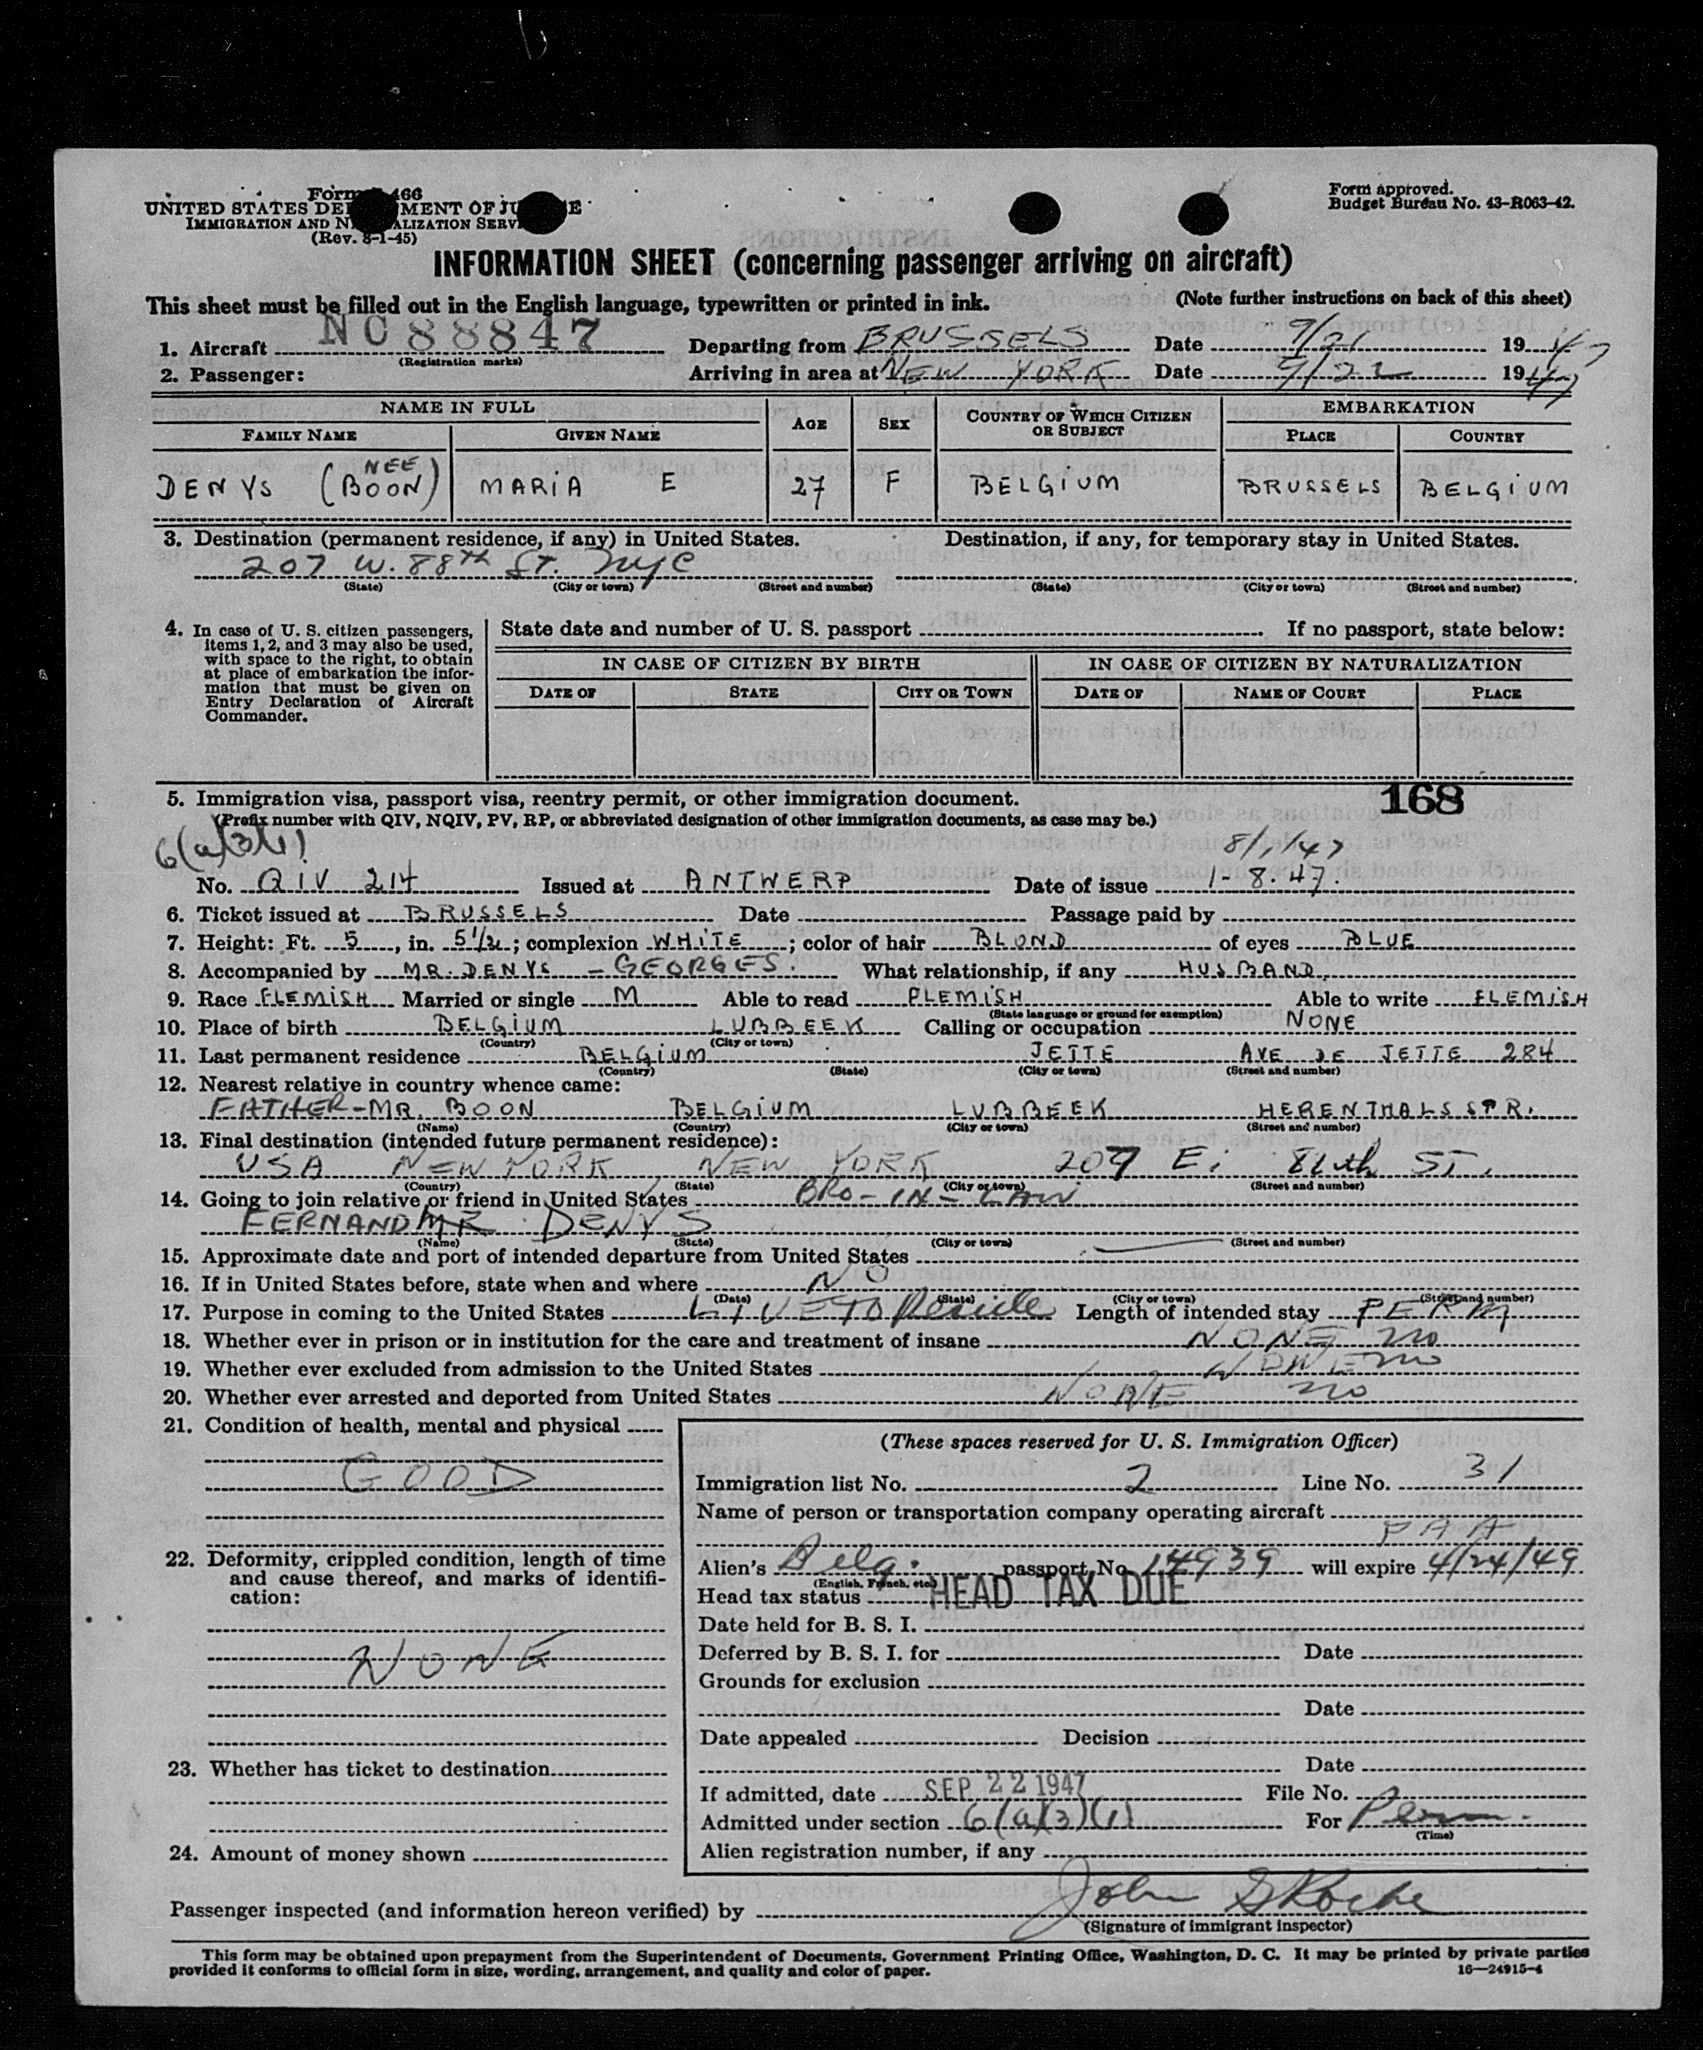 Form 466
UNITED STATES DEPARTMENT OF JUSTICE
IMMIGRATION AND NATURALIZATION SERVICE
(Rev. 8-1-45)
Form approved.
Budget Bureau No. 43-R063-42.
INFORMATION SHEET (concerning passenger arriving on aircraft)
This sheet must be filled out in the English language, typewritten or printed in ink. (Note further instructions on back of this sheet)
1. Aircraft NC 88847 Departing from BRUSSELS Date 9/21 1947
(Registration marks)
2. Passenger: Arriving in area at NEW YORK Date 9/22 1947
NAME IN FULL AGE SEX COUNTRY OF WHICH CITIZEN OR SUBJECT EMBARKATION
FAMILY NAME GIVEN NAME PLACE COUNTRY
DENYS (NEE BOON) MARIA E 27 F BELGIUM BRUSSELS BELGIUM
3. Destination (permanent residence, if any) in United States. Destination, if any, for temporary stay in United States.
207 W. 88TH ST. NYC
(State) (City or town) (Street and number) (State) (City or town) (Street and number)
4. In case of U. S. citizen passengers,
items 1, 2, and 3 may also be used,
with space to the right, to obtain
at place of embarkation the infor-
mation that must be given on
Entry Declaration of Aircraft
Commander.
State date and number of U. S. passport If no passport, state below:
IN CASE OF CITIZEN BY BIRTH IN CASE OF CITIZEN BY NATURALIZATION
DATE OF STATE CITY OR TOWN DATE OF NAME OF COURT PLACE
5. Immigration visa, passport visa, reentry permit, or other immigration document. 168
(Prefix number with QIV, NQIV, PV, RP, or abbreviated designation of other immigration documents, as case may be.)
6(a)(3)(1) 8/1/47
No. QIV 214 Issued at ANTWERP Date of issue 1-8.47.
6. Ticket issued at BRUSSELS Date Passage paid by
7. Height: Ft. 5, in. 5 1/2; complexion WHITE; color of hair BLOND of eyes BLUE
8. Accompanied by MR. DENYS - GEORGES. What relationship, if any HUSBAND.
9. Race FLEMISH Married or single M Able to read FLEMISH Able to write FLEMISH
(State language or ground for exemption)
10. Place of birth BELGIUM LUBBEEK Calling or occupation NONE
(Country) (City or town)
11. Last permanent residence BELGIUM JETTE AVE DE JETTE 284
(Country) (State) (City or town) (Street and number)
12. Nearest relative in country whence came:
FATHER-MR. BOON BELGIUM LUBBEEK HERENTHALS STR.
(Name) (Country) (City or town) (Street and number)
13. Final destination (intended future permanent residence):
USA NEW YORK NEW YORK 207 E. ST.
(Country) (State) (City or town) (Street and number)
14. Going to join relative or friend in United States BRO-IN-LAW
FERNAND MR DENYS
(Name) (State) (City or town) (Street and number)
15. Approximate date and port of intended departure from United States
16. If in United States before, state when and where NO
(Date) (State) (City or town) (Street and number)
17. Purpose in coming to the United States LIVE TO Reside Length of intended stay PERM
18. Whether ever in prison or in institution for the care and treatment of insane NONE no
19. Whether ever excluded from admission to the United States NONE no
20. Whether ever arrested and deported from United States NONE no
21. Condition of health, mental and physical
GOOD
22. Deformity, crippled condition, length of time
and cause thereof, and marks of identifi-
cation:
NONE
23. Whether has ticket to destination
24. Amount of money shown
(These spaces reserved for U. S. Immigration Officer)
Immigration list No. 2 Line No. 31
Name of person or transportation company operating aircraft
PAA
Alien's Belg. passport No. 14939 will expire 4/24/49
(English, French, etc.)
Head tax status HEAD TAX DUE
Date held for B. S. I.
Deferred by B. S. I. for Date
Grounds for exclusion
Date
Date appealed Decision
Date
If admitted, date SEP 22 1947 File No.
Admitted under section 6(a)(3)(1) For Perm.
(Time)
Alien registration number, if any
Passenger inspected (and information hereon verified) by John S Roche
(Signature of immigrant inspector)
This form may be obtained upon prepayment from the Superintendent of Documents, Government Printing Office, Washington, D. C. It may be printed by private parties
provided it conforms to official form in size, wording, arrangement, and quality and color of paper. 16—24915-4